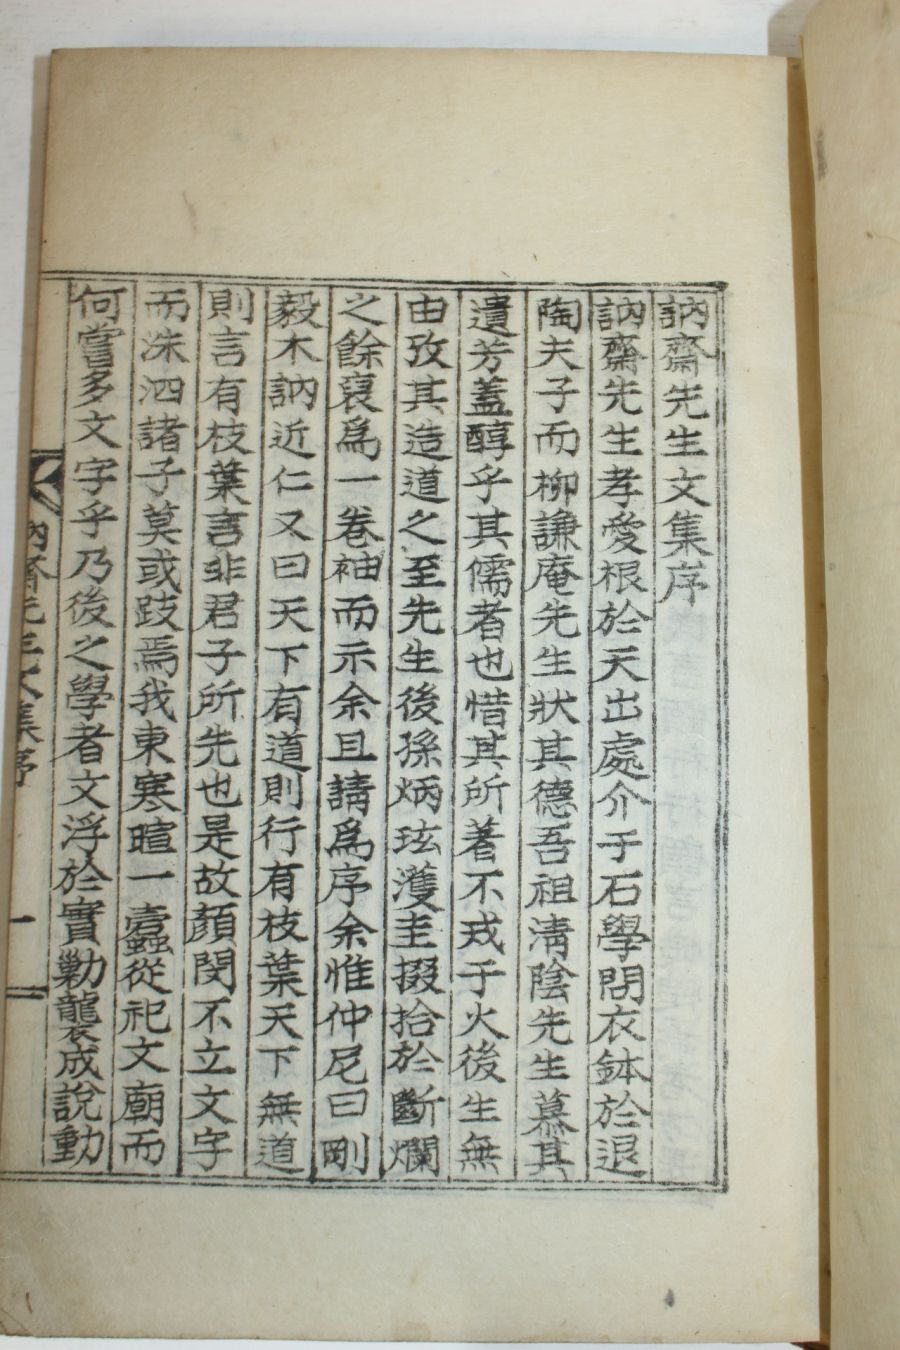 訥齋先生文集序
訥齋先生孝愛根於天出處介于石學問衣鉢於退
陶夫子而柳謙庵先生狀其德吾祖淸陰先生慕其
遺芳蓋醇乎其儒者也惜其所著不戎于火後生無
由攷其造道之至先生後孫炳玹濩圭掇拾於斷爛
之餘裒爲一卷袖而示余且請爲序余惟仲尼曰剛
毅木訥近仁又曰天下有道則行有枝葉天下無道
則言有枝葉言非君子所先也是故顏閔不立文字
而洙泗諸子莫或跂焉我東寒暄一蠹從祀文廟而
何嘗多文字乎乃後之學者文浮於實勦襲成說動
訥齋先生文集序
一